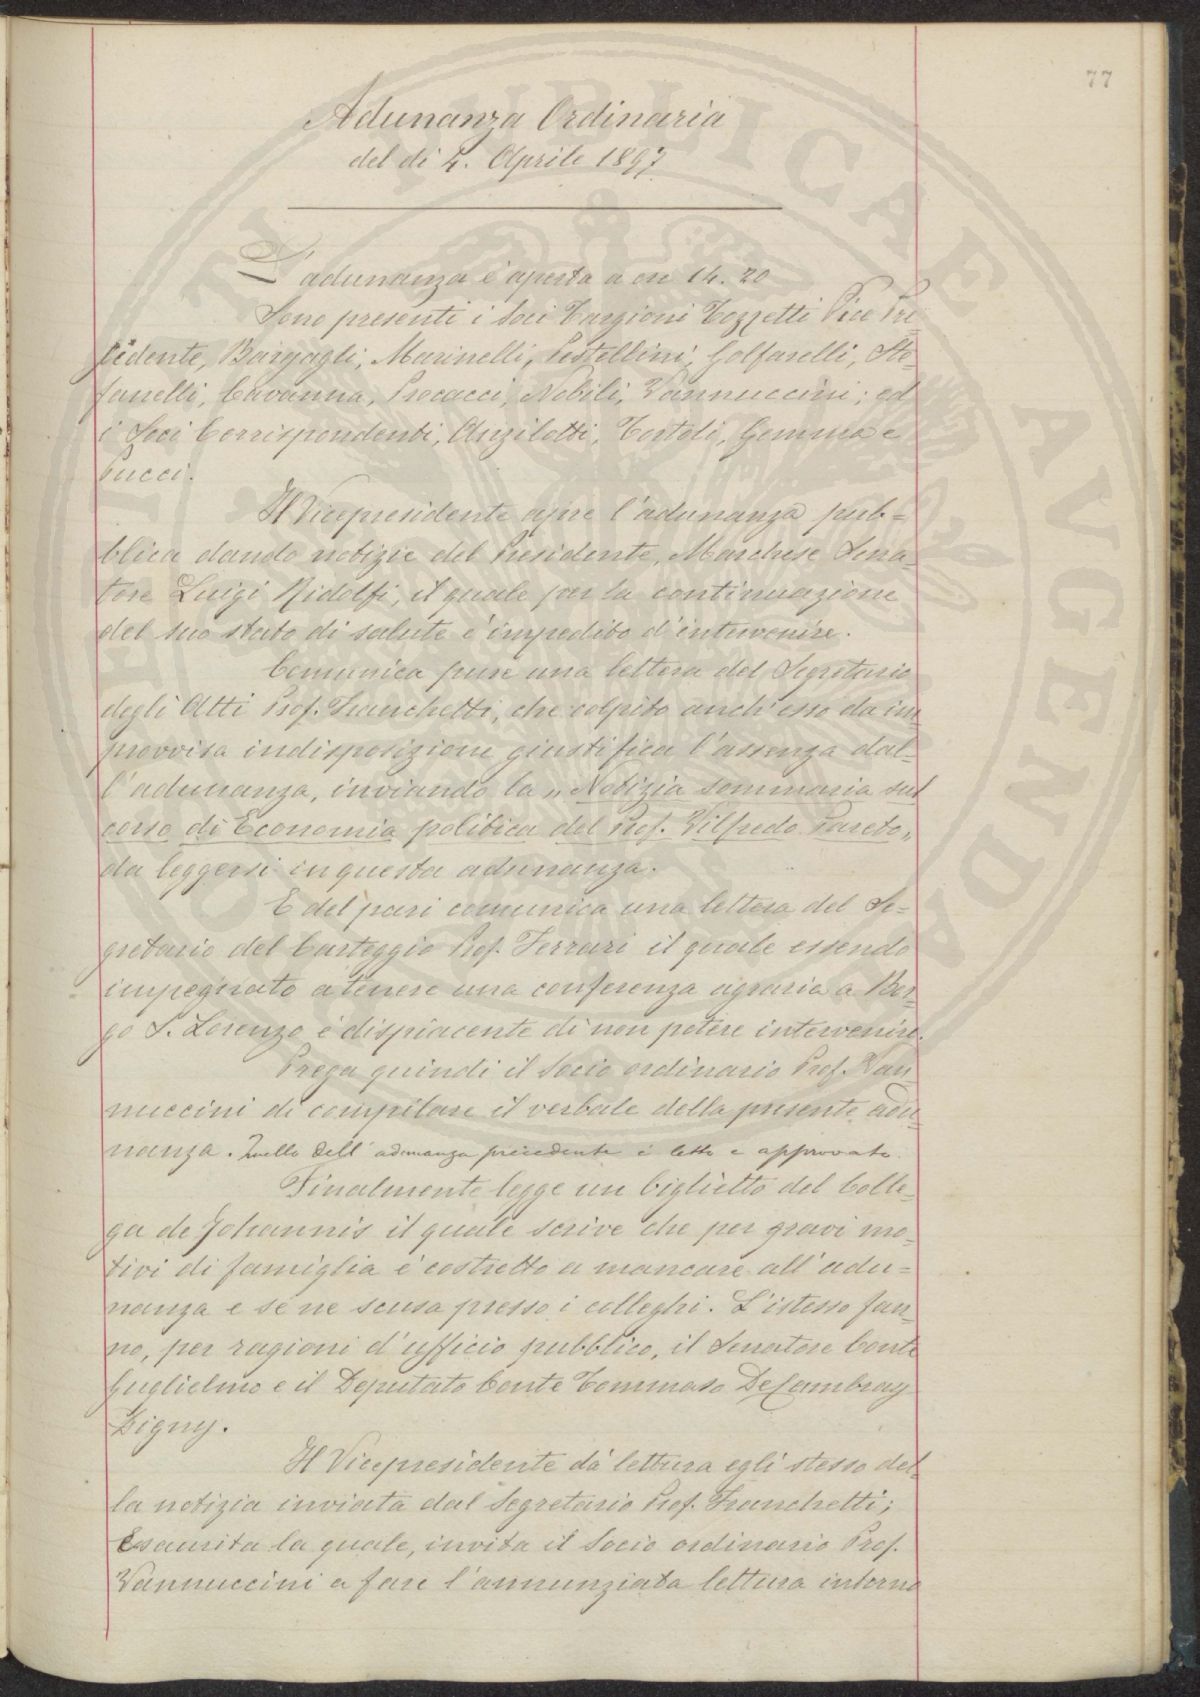 77
Adunanza Ordinaria
del dì 4. Aprile 1897
L'adunanza è aperta a ore 14.20
Sono presenti i Soci Targioni Tozzetti Vice Pre-
sidente, Bargagli, Marinelli, Pestellini, Golfarelli, Ste-
fanelli, Cavanna, Procacci, Nobili, Vannuccini; ed
i Soci Corrispondenti, Anzilotti, Tortoli, Gemma e
Pucci.
Il Vicepresidente apre l'adunanza pub=
blica dando notizie del Presidente, Marchese Sena-
tore Luigi Ridolfi, il quale per la continuazione
del suo stato di salute è impedito d'intervenire.
Comunica pure una lettera del Segretario
degli Atti Prof. Franchetti, che colpito anch'esso da im-
provvisa indisposizione giustifica l'assenza dal-
l'adunanza, inviando la „Notizia sommaria sul
corso di Economia politica del Prof. Vilfredo Pareto„
da leggersi in questa adunanza.
E del pari comunica una lettera del Se=
gretario del Carteggio Prof. Ferrari il quale essendo
impegnato a tenere una conferenza agraria a Bor-
go S. Lorenzo è dispiacente di non potere intervenire.
Prega quindi il Socio ordinario Prof. Van-
nuccini di compilare il verbale della presente adu-
nanza. Quello dell'adunanza precedente è letto e approvato.
Finalmente legge un biglietto del Colle-
ga de Johannis il quale scrive che per gravi mo-
tivi di famiglia è costretto a mancare all'adu=
nanza e se ne scusa presso i colleghi. L'istesso fan-
no, per ragioni d'ufficio pubblico, il Senatore Conte
Guglielmo e il Deputato Conte Tommaso De Cambray
Digny.
Il Vicepresidente dà lettura egli stesso del-
la notizia inviata dal Segretario Prof. Franchetti;
Esaurita la quale, invita il Socio ordinario Prof.
Vannuccini a fare l'annunziata lettura intorno